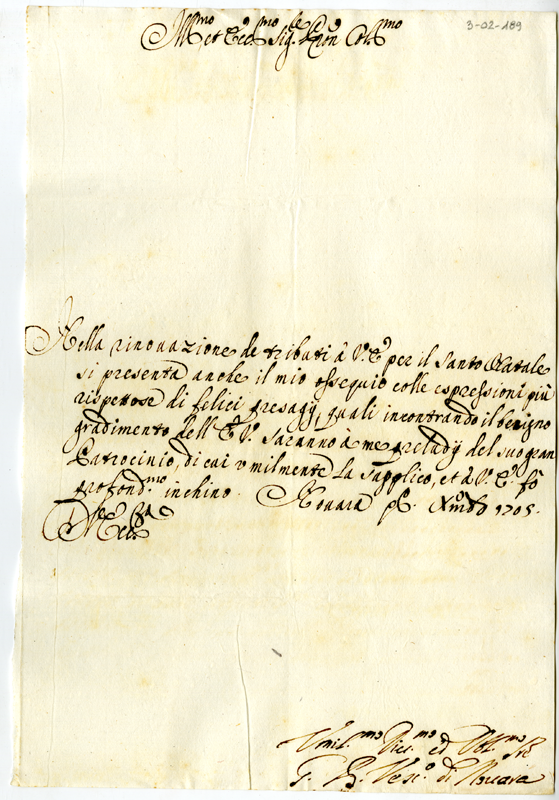 3-02-189
Ill.mo et Ecc.mo Sig.re P.ron Col.mo
Nella rinouazione de tributi à V. E. per il Santo Natale
si presenta anche il mio ossequio colle espressioni più
rispettose di felici presagÿ, quali incontrando il benigno
gradimento dell' E. V. saranno à me preludÿ del suo gran
Patrocinio, di cui vmilmente La supplico, et à V. E. fò
profond.mo inchino. Nouara Xmbre 1705.
Vmil.mo Diu.mo ed Obl.mo Sre
Vesc.o di Nouara